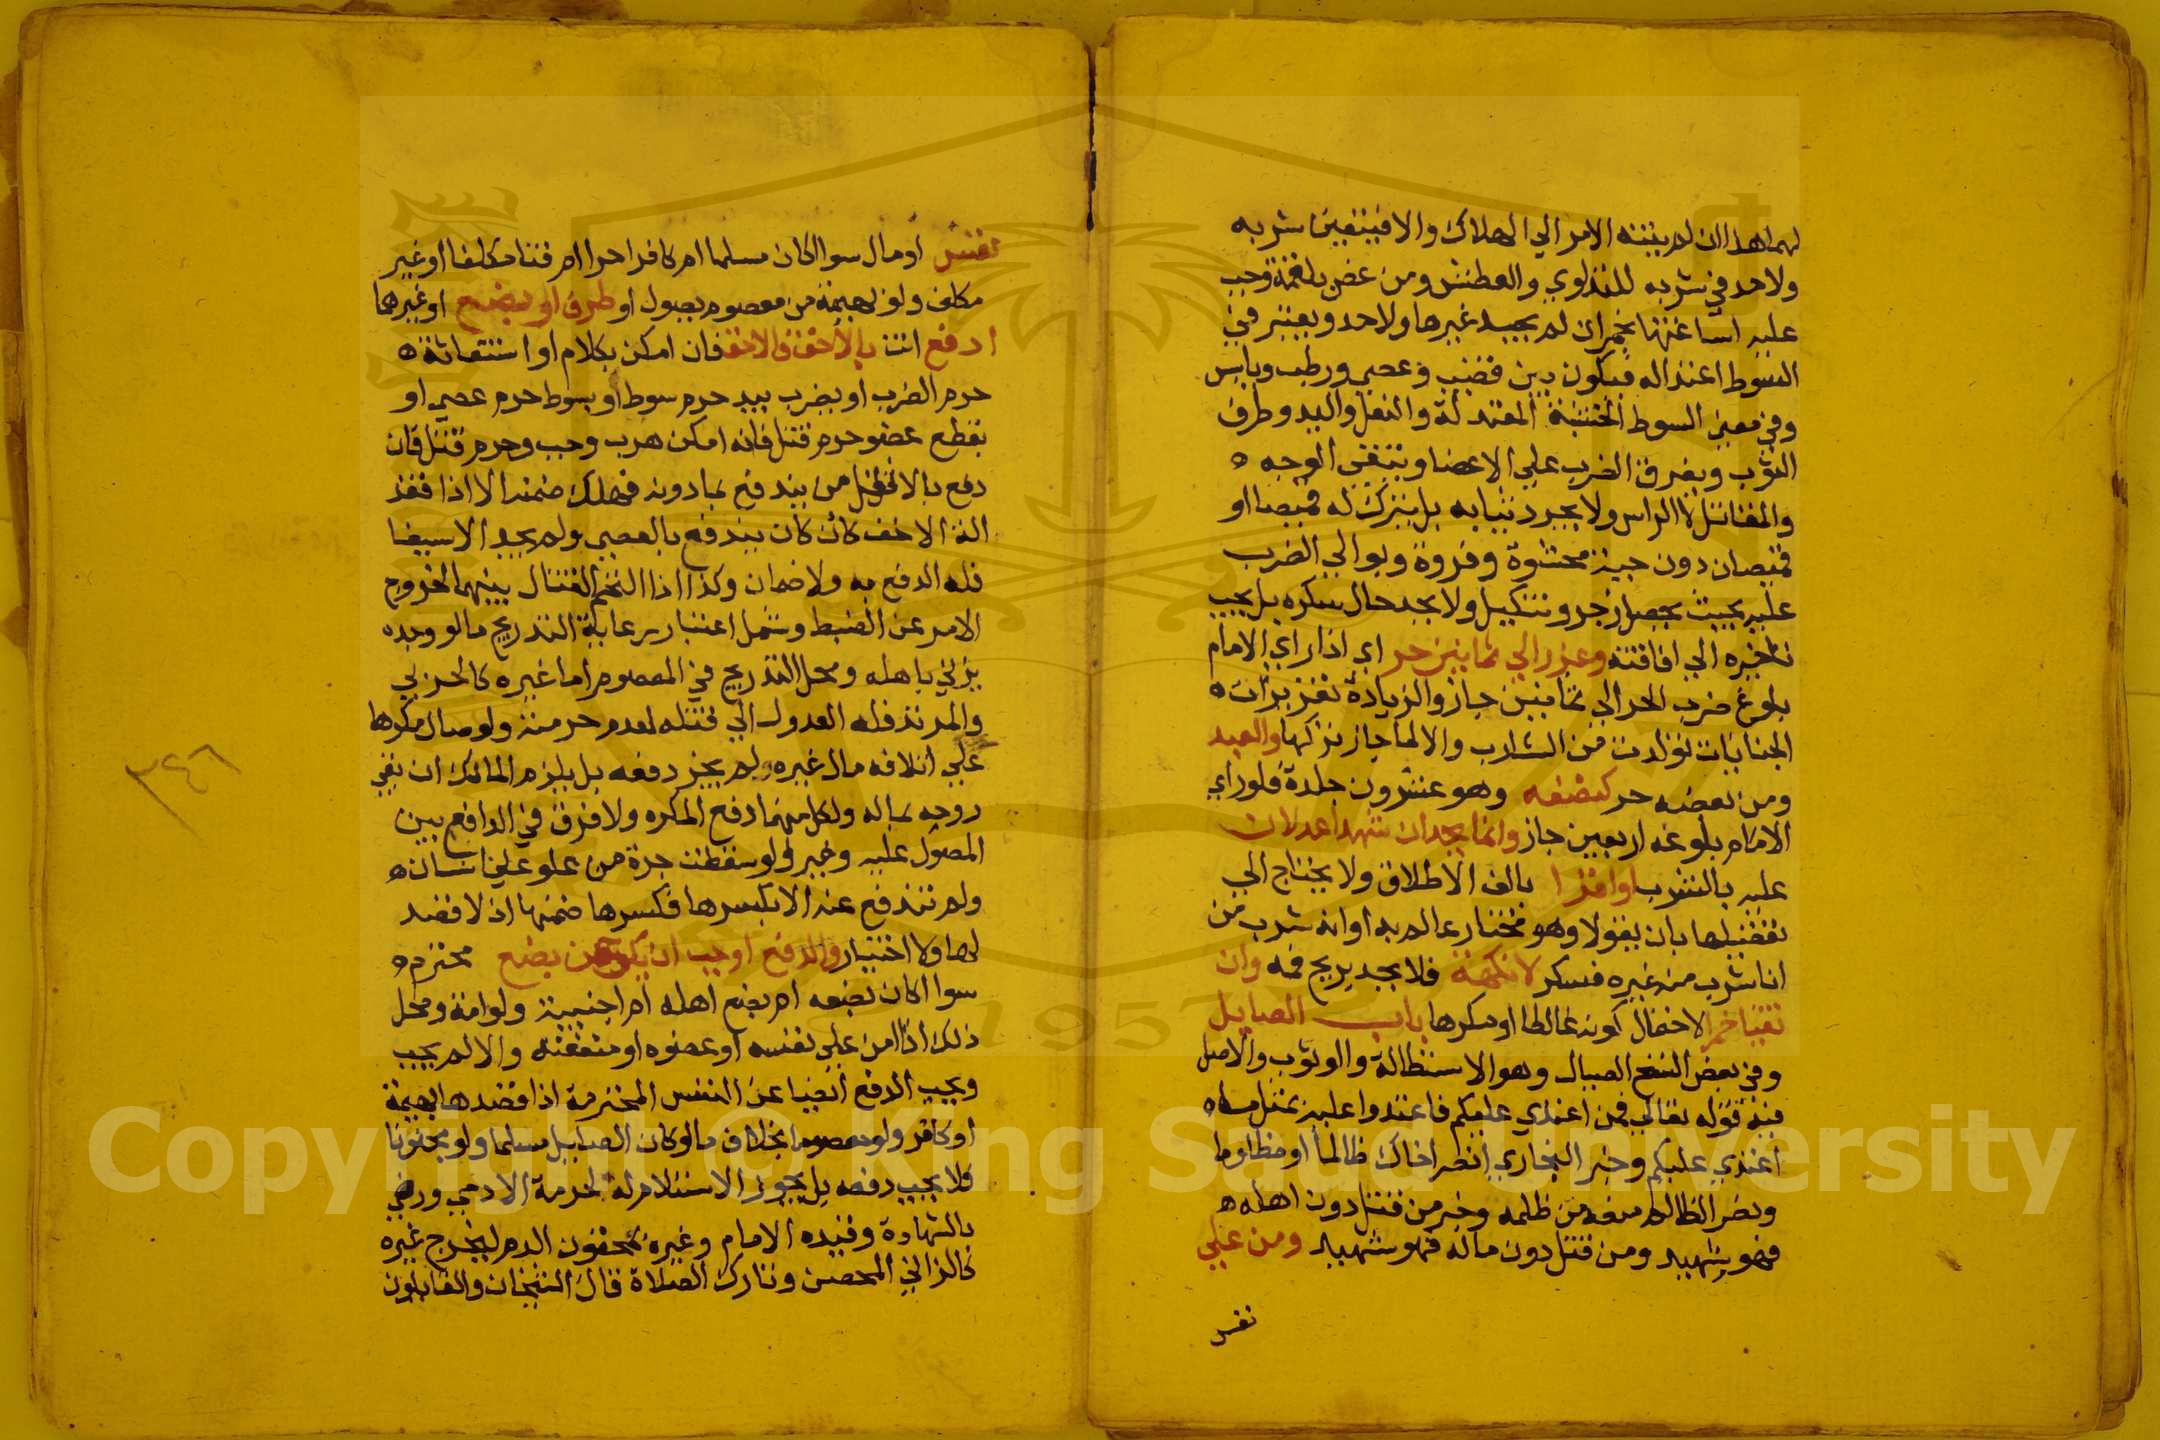 لهما هذا ان لم ينته الامر الي الهلاك والا فيتعين شربه
ولا حد في شربه للتداوي والعطش ومن غص بلقمة وجب
عليه اساغتها بخمر ان لم يجد غيرها ولا حد ويعتبر في
السوط اعتداله فيكون بين قضيب وعصي ورطب ويابس
وفي معني السوط الخشبة المعتدلة والنعل واليد وطرف
الثوب ويفرق الضرب علي الاعضا ويتقي الوجه
والمقاتل لا الراس ولا يجرد ثيابه بل يترك له قميصا او
قميصان دون جبة محشوة وفروة ويوالي الضرب
عليه بحيث يحصل زجر وتنكيل ولا يحد حال سكره بل يجب
تاخيره الي افاقته وعزر الي ثمانين حر اي اذا راي الامام
بلوغ ضرب الحر الي ثمانين جاز والزيادة تعزيرات
الجنايات تولدت من الشارب والا لما جاز تركها والعبد
ومن بعضه حر كنصفه وهو عشرون جلدة فلو راي
الامام بلوغه اربعين جاز وانما يحد ان شهد اعدلان
عليه بالشرب او اقرا بالف الاطلاق ولا يحتاج الي
تفصيلها بان يقولا وهو مختار عالم به او انه شرب من
انا شرب منه غيره فسكر لا نكهة فلا يحد بريح فمه وان
تقيا خمرا لاحتمال كونه غالطا او مكرها باب الصايل
وفي بعض النسخ الصيال وهو الاستطالة والوثوب والاصل
فيه قوله تعالي فمن اعتدي عليكم فاعتدوا عليه بمثل ما
اعتدي عليكم وخبر البخاري انصر اخاك ظالما او مظلوما
ونصر الظالم منعه من ظلمه وخبر من قتل دون اهله
فهو شهيد ومن قتل دون ماله فهو شهيد ومن علي
نفس
نفس او مال سوا اكان مسلما ام كافرا حرا ام قنا مكلفا او غير
مكلف ولو بهيمة من معصوم يصول او طرف او بضع او غيرهما
ادفع انت بالاخف فالاخف فان امكن بكلام او استغاثة
حرم الضرب او بضرب بيد حرم سوط او بسوط حرم عصي او
بقطع عضو حرم قتل فان امكن هرب وجب وحرم قتل فان
دفع بالاثقل من يندفع بما دونه فهلك ضمنه الا اذا فقد
الة الاخف كان كان يندفع بالعصي ولم يجد الا سيفا
فله الدفع به ولا ضمان وكذا اذا التحم القتال بينهما لخروج
الامر عن الضبط وشمل اعتبار رعاية التدريج ما لو وجده
يزني باهله ومحل التدريج في المعصوم اما غيره كالحربي
والمرتد فله العدول الي قتله لعدم حرمته ولو صال مكرها
علي اتلاف مال غيره لم يجز دفعه بل يلزم المالك ان يقي
روحه بماله ولكل منهما دفع المكره ولا فرق في الدافع بين
المصول عليه وغيره ولو سقطت جرة من علو علي انسان
ولم تندفع عنه الا بكسرها فكسرها ضمنها اذ لا قصد
لها ولا اختيار والدفع اوجب ان يكن عن بضع محترم
سوا اكان بضعه ام بضع اهله ام اجنبية ولو امة ومحل
ذلك اذا امن علي نفسه او عضوه او منفعته والا لم يجب
ويجب الدفع ايضا عن النفس المحترمة اذا قصدها بهيمة
او كافر ولو معصوما بخلاف ما لو كان الصايل مسلما ولو مجنونا
فلا يجب دفعه بل يجوز الاستسلام له لحرمة الادمي ورضي
بالشهادة وقيده الامام وغيره بمحقون الدم ليخرج غيره
كالزاني المحصن وتارك الصلاة قال الشيخان والقايلون
٣٤٦